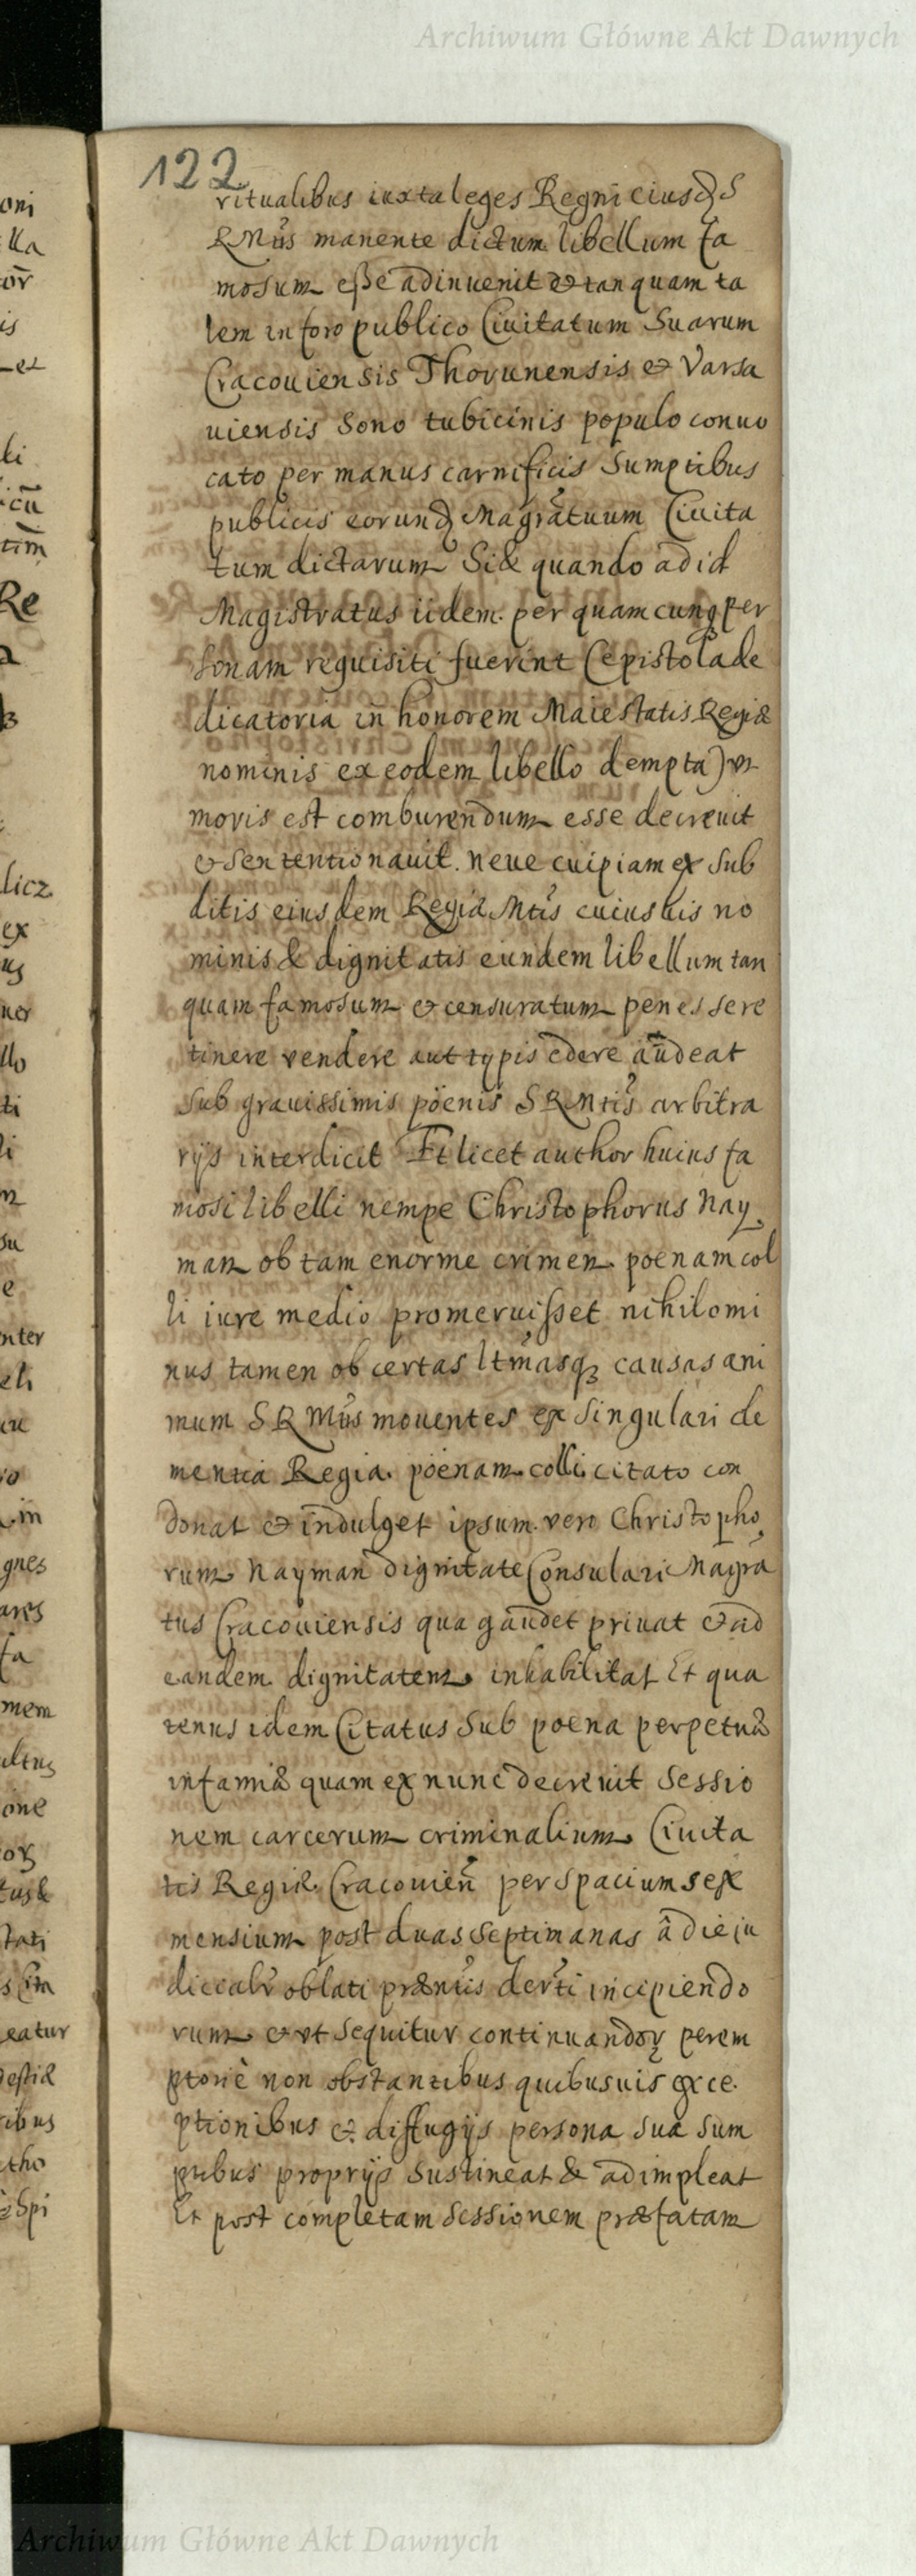 Archiwum Główne Akt Dawnych
122
ritualibus iuxta leges Regni eiusdȝ S
R Mtis manente dictum libellum fa
mosum eße adinuenit & tanquam ta
lem in foro publico Ciuitatum Suarum
Cracouiensis Thorunensis & Varsa
uiensis Sono tubicinis populo conuo
cato per manus carnificis Sumptibus
publicis eorundȝ Magratuum Ciuita
tum dictarum Si & quando ad id
Magistratus iidem per quamcunqȝ per
sonam requisiti fuerint (epistola de
dicatoria in honorem Maiestatis Regiæ
nominis ex eodem libello dempta) vt
moris est comburendum esse decreuit
& sententionauit. neue cuipiam ex Sub
ditis eiusdem Regiæ Mtis cuiusuis no
minis & dignitatis eundem libellum tan
quam famosum & censuratum penes se re
tinere vendere aut typis edere audeat
Sub grauissimis poenis S R Mtis arbitra
rijs interdicit Et licet author huius fa
mosi libelli nempe Christophorus Nay
man ob tam enorme crimen poenam col
li iure medio promeruisset nihilomi
nus tamen ob certas ltmasqȝ causas ani
mum S R Mtis mouentes ex singulari cle
mentia Regia poenam colli citato con
donat & indulget ipsum vero Christopho
rum Nayman dignitate Consulari Magra
tus Cracouiensis qua gaudet priuat & ad
eandem dignitatem inhabilitat Et qua
tenus idem Citatus Sub poena perpetuæ
infamiæ quam ex nunc decreuit Sessio
nem carcerum criminalium Ciuita
tis Regiæ Cracouien̄ per spacium sex
mensium post duas Septimanas â die iu
dicialr oblati præntis derti incipiendo
rum & vt sequitur continuandoꝝ perem
ptoriè non obstantibus quibusuis exce
ptionibus & diffugijs persona sua sum
ptibus proprijs Sustineat & adimpleat
Et post completam Sessionem præfatam
Archiwum Główne Akt Dawnych